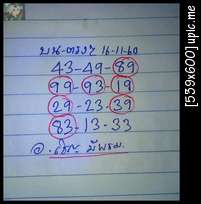 บน-ตรงๆ 16-11-60
43-49-89
99-93-19
29-23-39
83-13-33
[539x600] upic.me